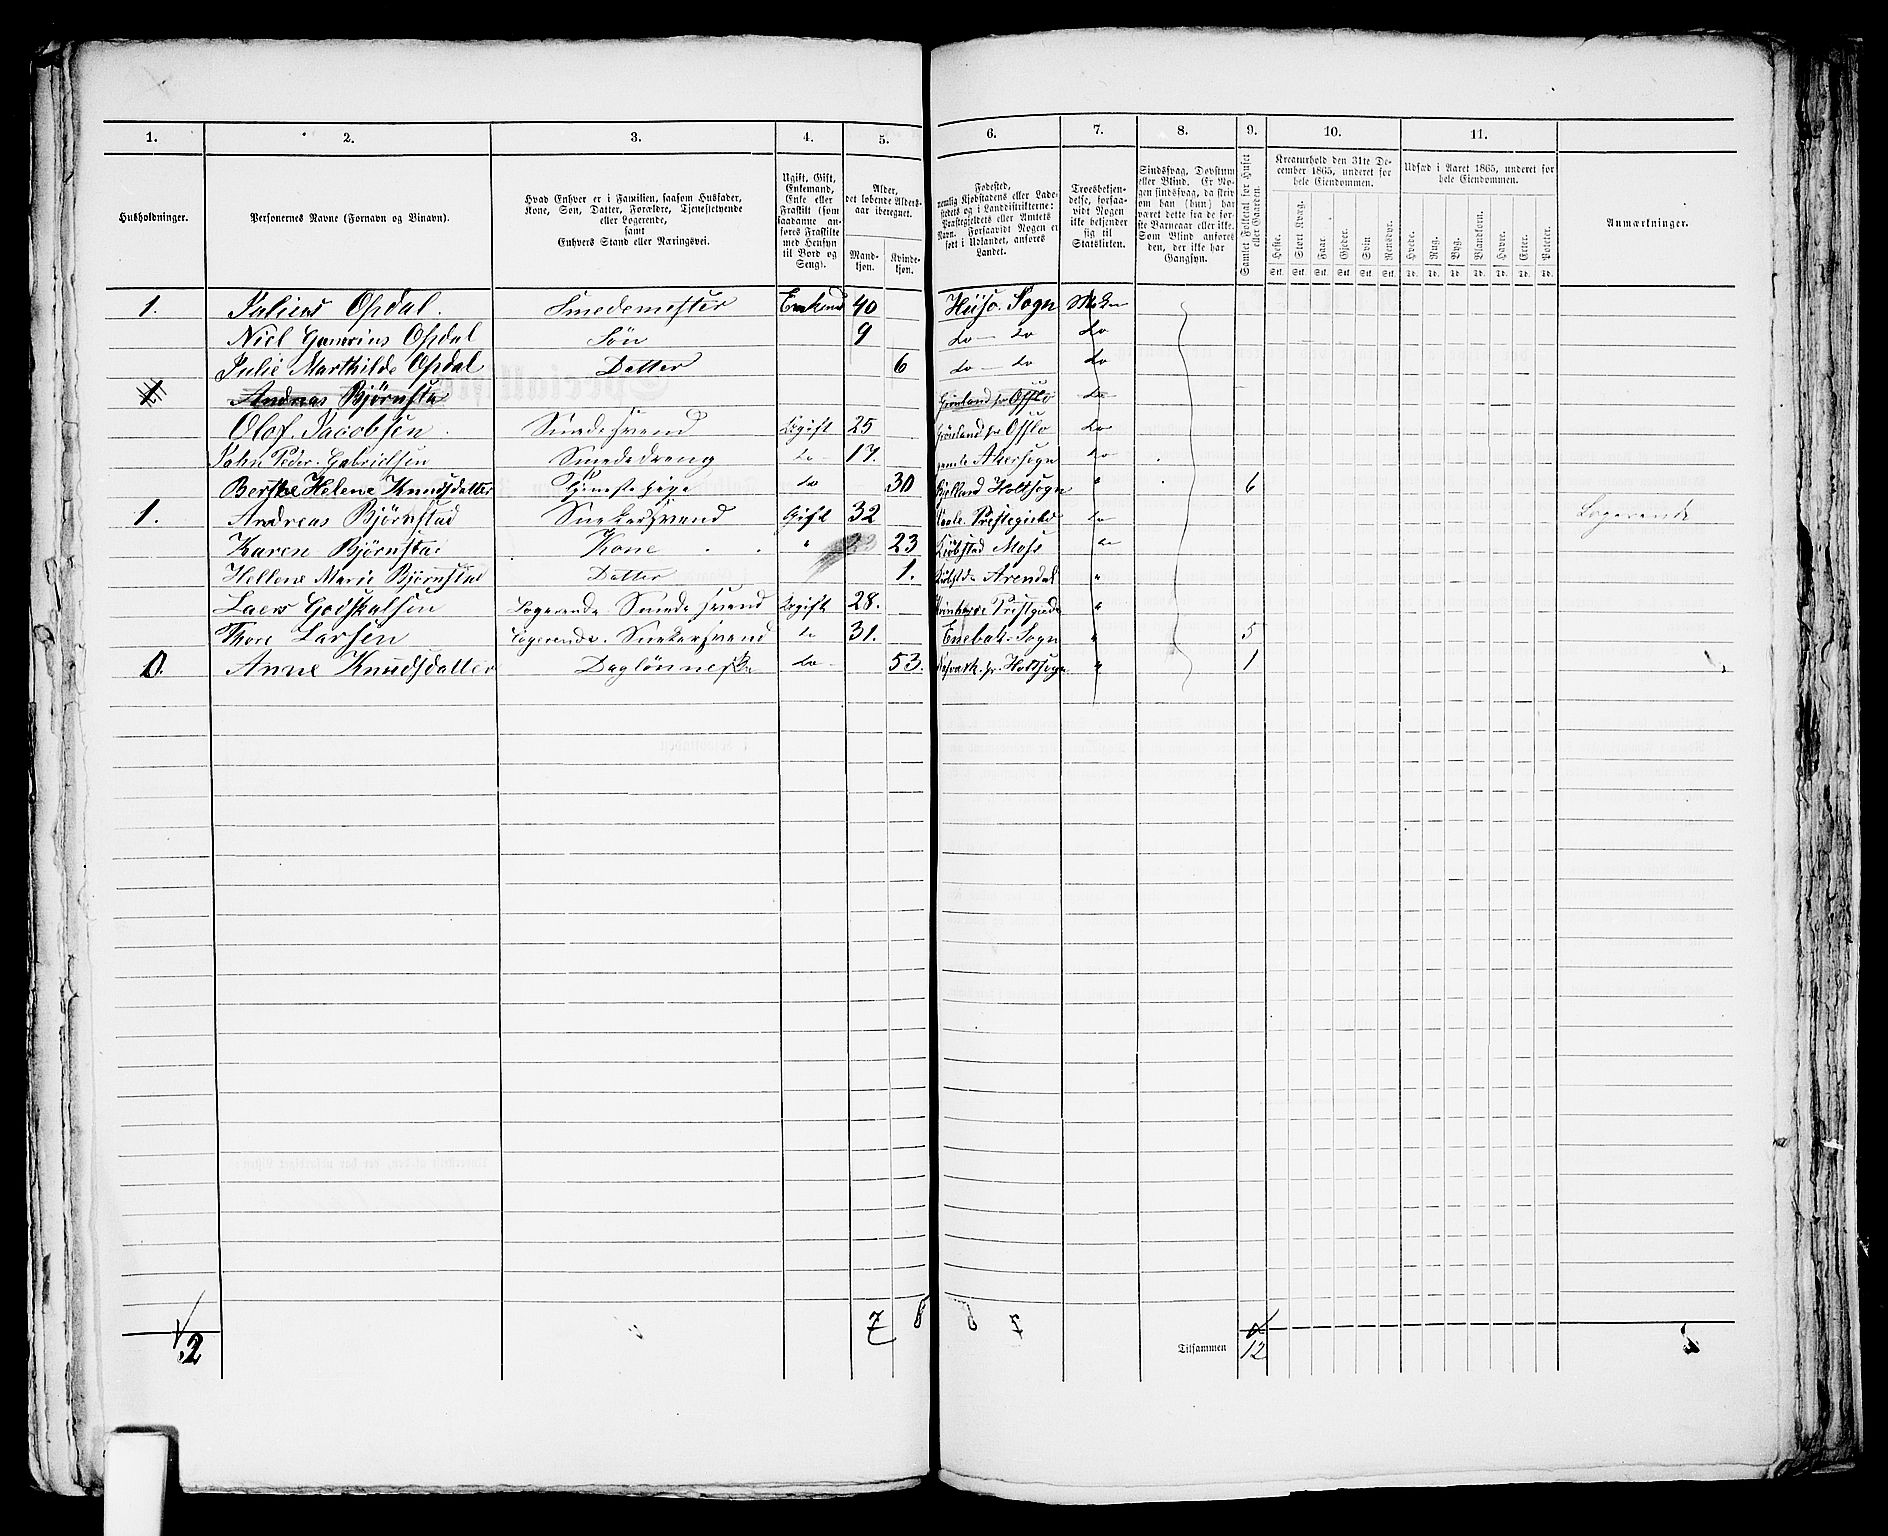 1. 2. 3. 4. 5. 6. 7. 8. 9. 10. 11.
Husholdninger.
Personernes Navne (Fornavn og Binavn).
Hvad Enhver er i Familien, saasom Husfader,
Kone, Søn, Datter, Forældre, Tjenestetyende
eller Logerende,
samt
Enhvers Stand eller Næringsvei.
Ugift, Gift,
Enkemand,
Enke eller
Fraskilt (som
saadanne an-
føres Fraskilte
med Hensyn
til Bord og
Seng).
Alder,
det løbende Alders-
aar iberegnet.
Mand-
kjøn.
Kvinde-
kjøn.
Fødested,
nemlig Kjøbstadens eller Lade-
stedets og i Landdistrikterne:
Præstegjeldets eller Amtets
Navn. Forsaavidt Nogen er
født i Udlandet, anføres
Landet.
Troesbekjen-
delse, forsaa-
vidt Nogen
ikke bekjender
sig til
Statskirken.
Sindssvag, Døvstum
eller Blind. Er No-
gen sindssvag, da skriv
om han (hun) har
været dette fra de før-
ste Barneaar eller ikke.
Som Blind anføres
den, der ikke har
Gangsyn.
Samlet Folketal for Huset
eller Gaarden.
Kreaturhold den 31te De-
cember 1865, underet for
hele Eiendommen.
Heste. Stort Kvæg. Faar. Gjeder. Svin. Rensdyr.
Stk. Stk. Stk. Stk. Stk. Stk.
Udsæd i Aaret 1865, underet for
hele Eiendommen.
Hvede. Rug. Byg. Blandkorn. Havre. Erter. Poteter.
Td. Td. Td. Td. Td. Td. Td.
Anmærkninger.
1. Julius Opdal. Smedemester Enkemd 40 Hüso. Sogn
Niel Opdal Søn 9 do — do do
Julie Marthilde Opdal Datter 6 do — do do
1 Andreas Bjørnsta Grønland pr Opslo do
Olof. Jacobsen. Smedesvend Ugift 25 Grønland pr Opslo do
John Peder. Gabrielsen Smededreng do 17. gamle Akersogn do
Berthe Helene Knudsdatter Tjenestepige do 30 Gjelland Holtsogn " 6
1. Andreas Bjørnstad Snekersvend Gift 32 Prestegield do Logerende
Karen Bjørnstad Kone " 23 23 Kiøbstad Moss do
Hellene Marie Bjørnstad Datter 1. Arendal "
Laers Godskalsen Logerende Smedesvend Ugift 28. "
Thore Larsen Logerende. Snekersvend do 31. Enebak. Sogn " 5
0. Anne Knudsdatter Daglønneske do 53. pr Holtsogn " 1
2 7 6
Tilsammen 12